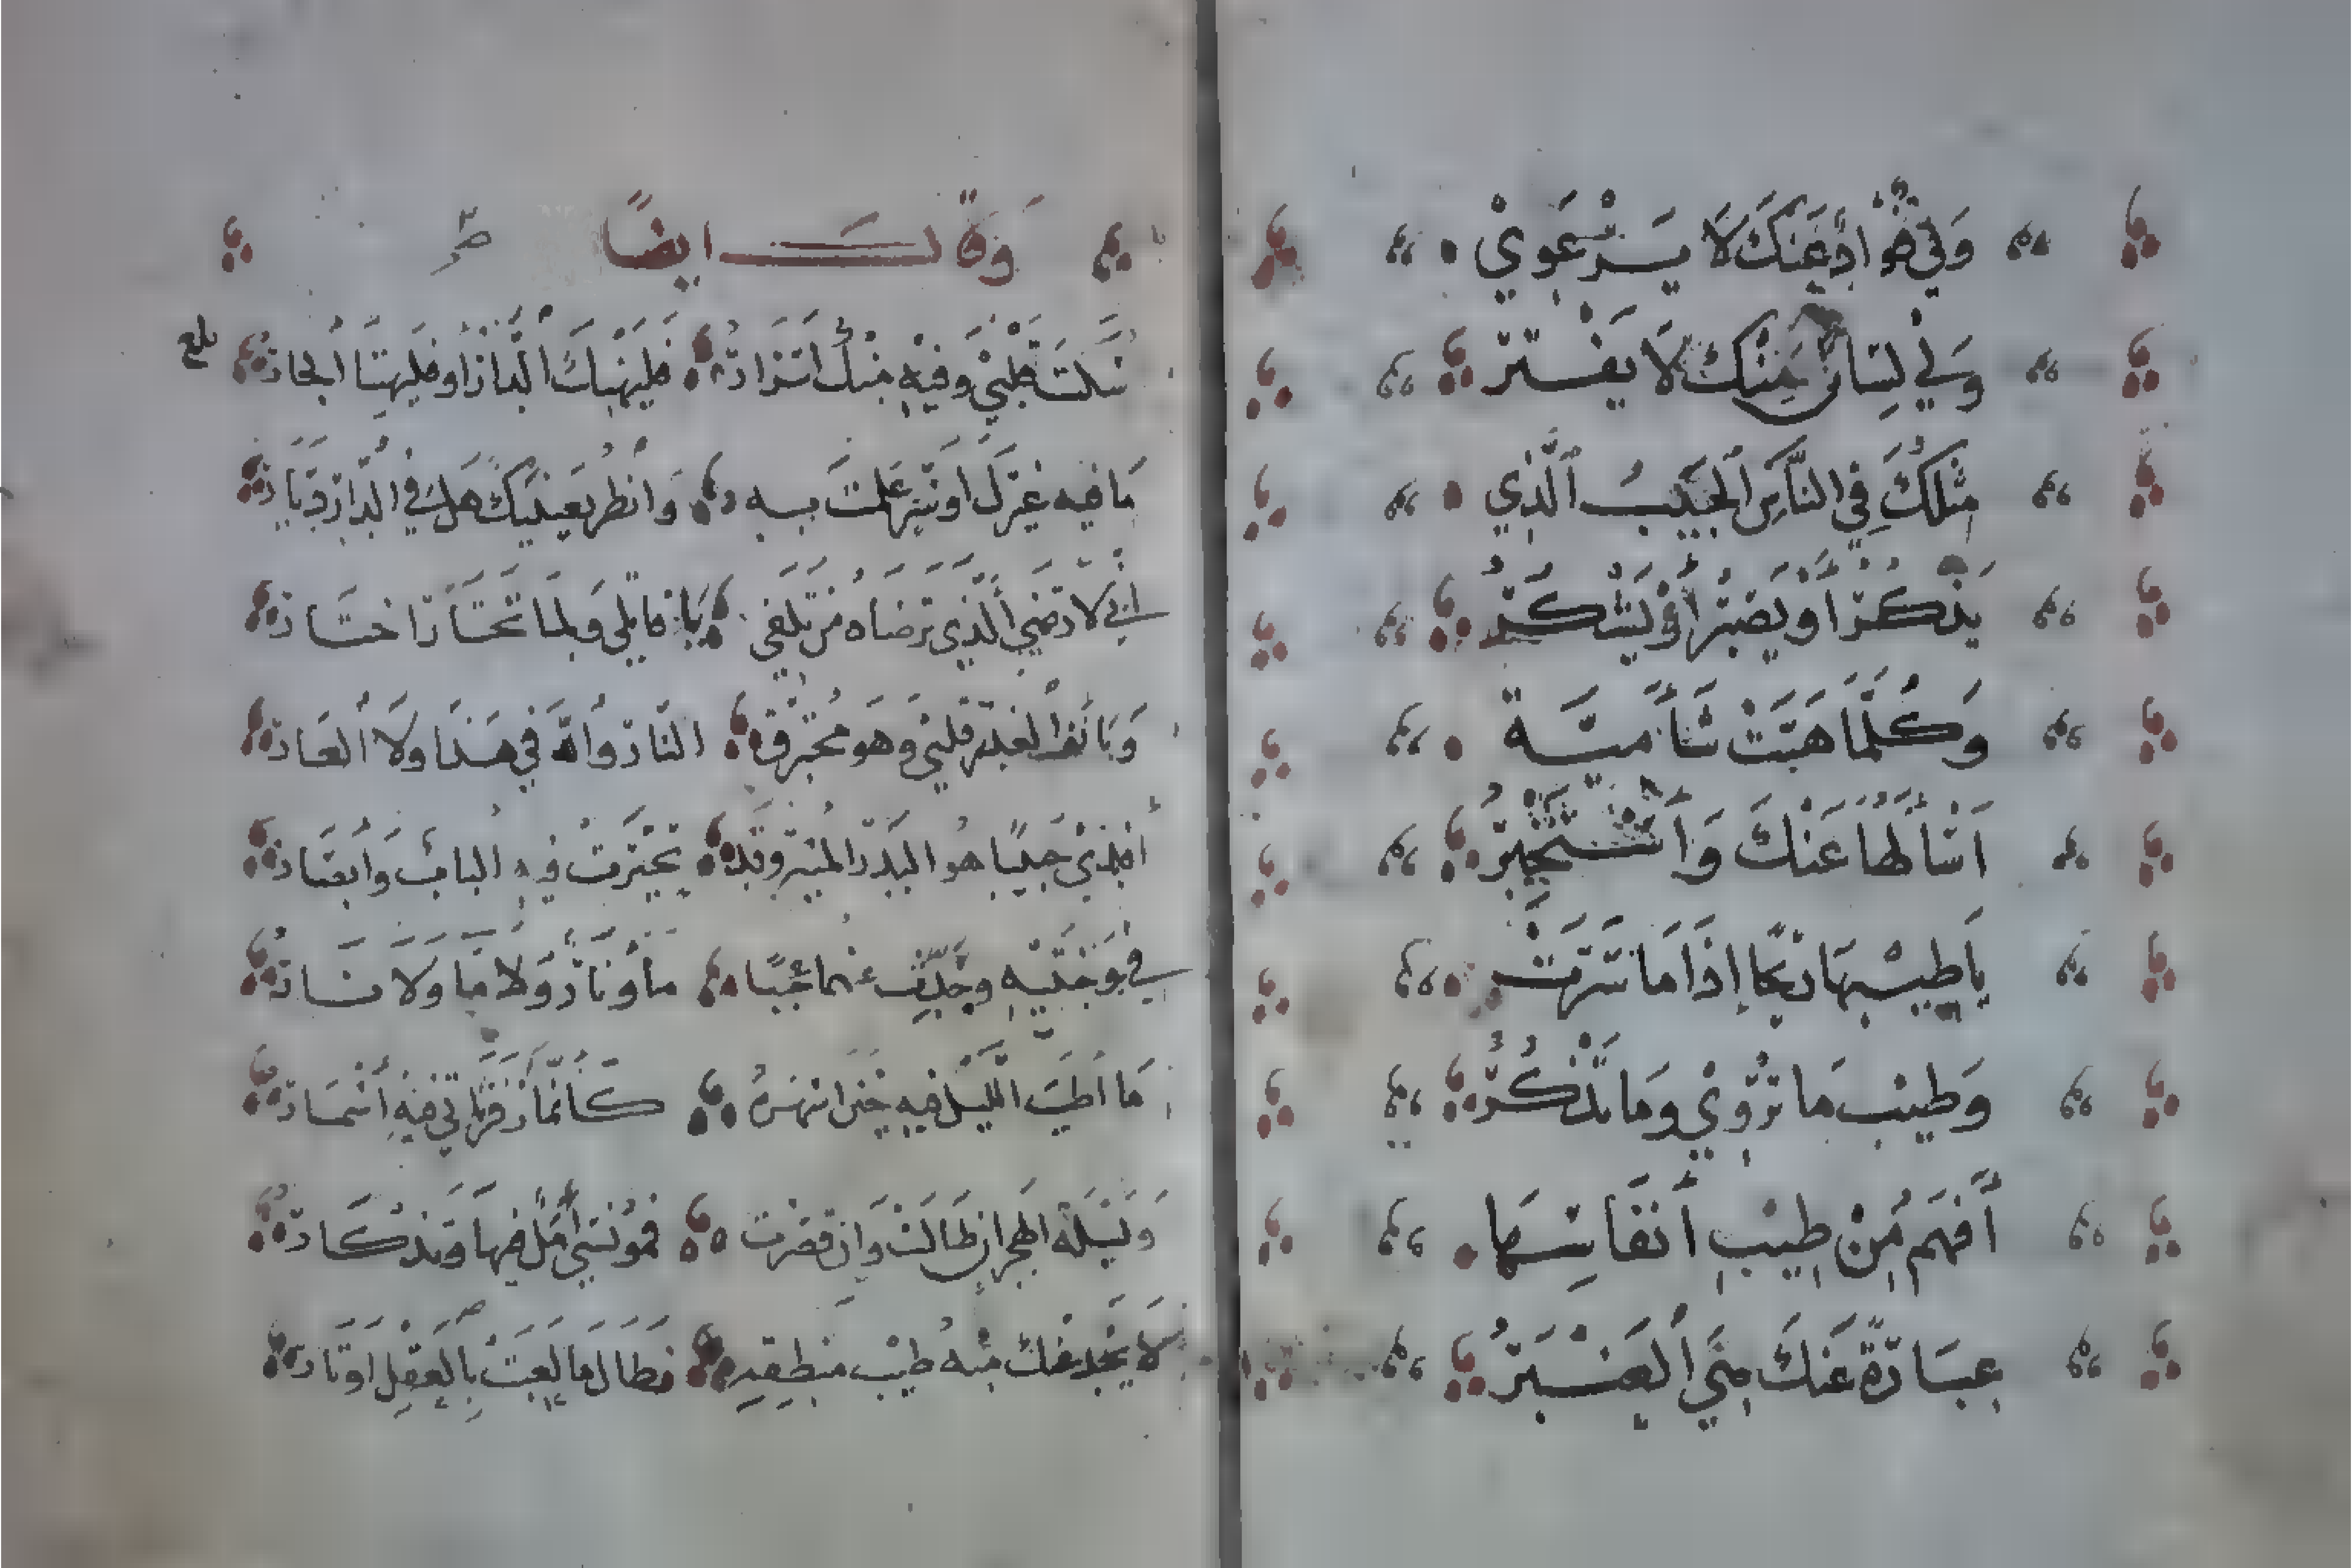 وَلِي فُؤَادٌ عَنْكَ لَا يَرْعَوِيْ
وَلِي لِسَانٌ عَنْكَ لَا يَفْتُرُ
مِثْلُكَ فِي النَّاسِ الْحَبِيْبُ الَّذِي
يُذْكَرُ أَوْ يُضْمَرُ أَوْ يُشْكَرُ
وَكُلَّمَا هَبَّتْ شَأْمِيَّة
اَسْأَلُهَا عَنْكَ وَأَسْتَخْبِرُ
يَا طِيْبَهَا رِيْحًا إِذَا مَا سَرَتْ
وَطِيْبَ مَا تَرْوِيْ وَمَا تَذْكُرُ
أَفْهَمُ مِنْ طِيْبِ أَنْفَاسِهَا
عِبَارَةً عَنْكَ هِيَ الْعَنْبَرُ
وَقَالَ ايضًا
سَكَنْتَ قَلْبِيْ وَفِيْهِ مِنْكَ أَسْرَارُ فَلْيَهْنِكَ الدَّارُ أَو فَلْيَهْنِهَا الْجَارُ
مَا فِيه غَيْرُكَ أَو سِرٌّ عَلِمْتَ بِه وَانْظُر بِعَيْنَيْكَ هَلْ فِي الدَّارِ دَيَّارُ
إِنِّي لَارْضَى الَّذِي تَرْضَاهُ مِنْ تَلَفِي يَا قَاتِلِي وَلِمَا تَخْتَارُ اخْتَارُ
النَّارُ وَاللهِ فِي هَذَا وَلَا الْعَارُ
أَفْدِيْ حَبِيْبًا هُو الْبَدْرُ الْمُنِيْر وَقَد تَحَيَّرَتْ فِيهِ الْبَابٌ وَأَبْصَارُ
فِي وَجْنَتَيْهِ وَحَدِّثْ عَنْهُمَا عَجَبًا مَاءٌ وَنَارٌ وَلَا مَا وَلَا نَارُ
مَا أَطْيَبَ اللَّيْلَ فِيه حِيْنَ اسْهَرُهُ كَأَنَّمَا زَفَرَاتِي فِيْهِ أَسْمَارُ
وَلَيْلَةُ الْهَجْرِ إِنْ طَالَتْ وَإِنْ قَصُرَتْ فَمُؤْنِسِي أَمَلٌ فِيْهَا وَتَذْكَارُ
لَا يَخْدَعَنْكَ مِنْهُ طِيْبُ مَنْطِقِهِ فَطَالَمَا لَعِبَتْ بِالْعَقْلِ اوْتَارُ
بلغ